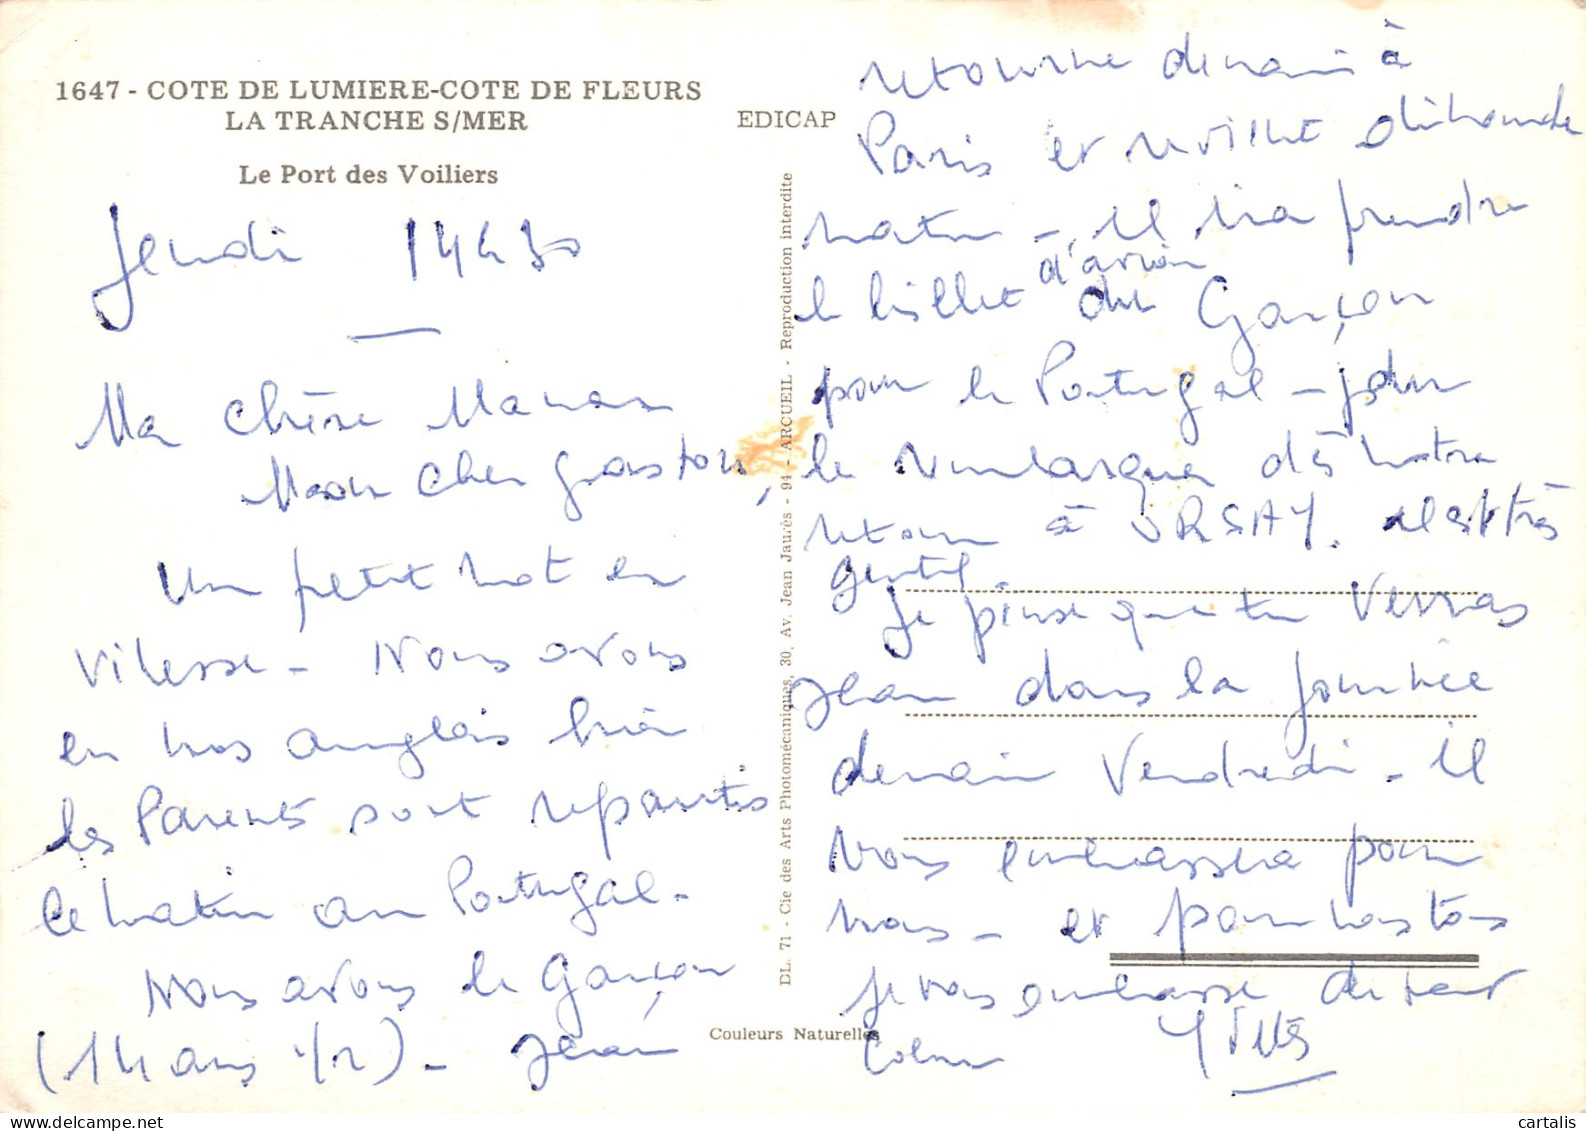 1647 - COTE DE LUMIERE-COTE DE FLEURS
LA TRANCHE S/MER
Le Port des Voiliers
EDICAP
Jeudi 14h30
Ma chère Maman
Mon cher gaston,
Un petit mot en
vitesse - Nous avons
eu nos anglais hier
les Parents sont repartis
ce matin au Portugal -
Nous avons le Garçon
(14 ans 1/2) - Jean
DL. 71 - Cie des Arts Photomécaniques, 30, Av. Jean Jaurès - 94 - ARCUEIL - Reproduction interdite
Couleurs Naturelles
retourne demain à
Paris et revient dimanche
matin - il ira prendre
le billet d'avion du Garçon
pour le Portugal - pour
le rembarquer dès notre
retour à ORSAY. il est très
gentil.
Je pense que tu verras
Jean dans la journée
demain Vendredi - il
vous embrassera pour
nous - et pour nous tous
je vous embrasse de tout
coeur
cartalis